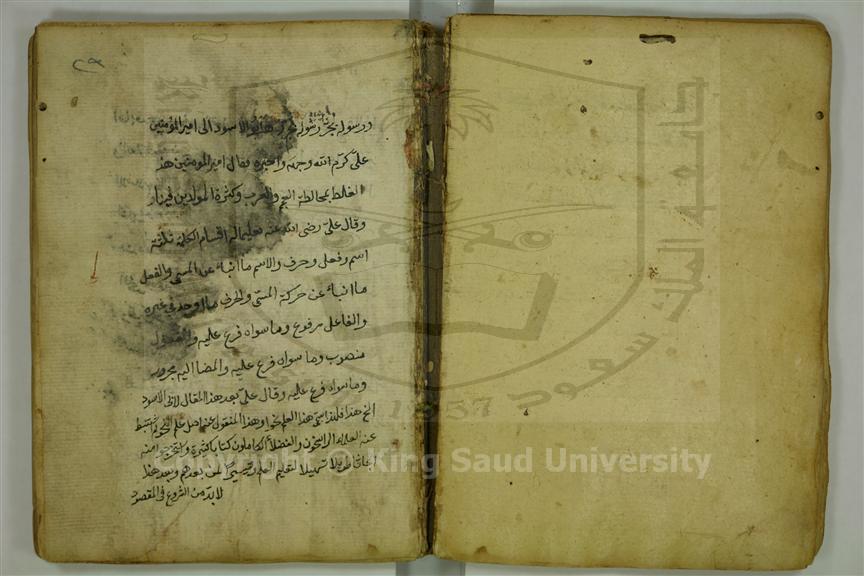 ورسوله بجر رسوله الاسود الى امير المؤمنين
على كرم الله وجهه واخبره فقال امير المؤمنين هذا
الغلط بمخالطة العجم والعرب وكثرة المولدين
وقال على رضى الله عنه تعليما له اقسام الكلمة ثلثة
اسم وفعل وحرف والاسم ما انباء عن المسمى والفعل
ما انباء عن حركة المسمى والحرف ما اوجد فى غيره
والفاعل مرفوع وما سواه فرع عليه والمفعول
منصوب وما سواه فرع عليه والمضا اليه مجرور
وما سواه فرع عليه وقال على بعد هذا المقال لابى الاسود
انح هذا فلذا سمى هذا العلم نحوا وهذا المنقول عن اهل علم النحو
عنه العلماء الراسخون والفضلاء الكاملون كتابا كثيرة
تسهيلا لتعليم العلم لمن بعدهم وبعد هذا
لابد من الشروع فى المقصود
Copyright © King Saud University
جامعة الملك سعود
1957